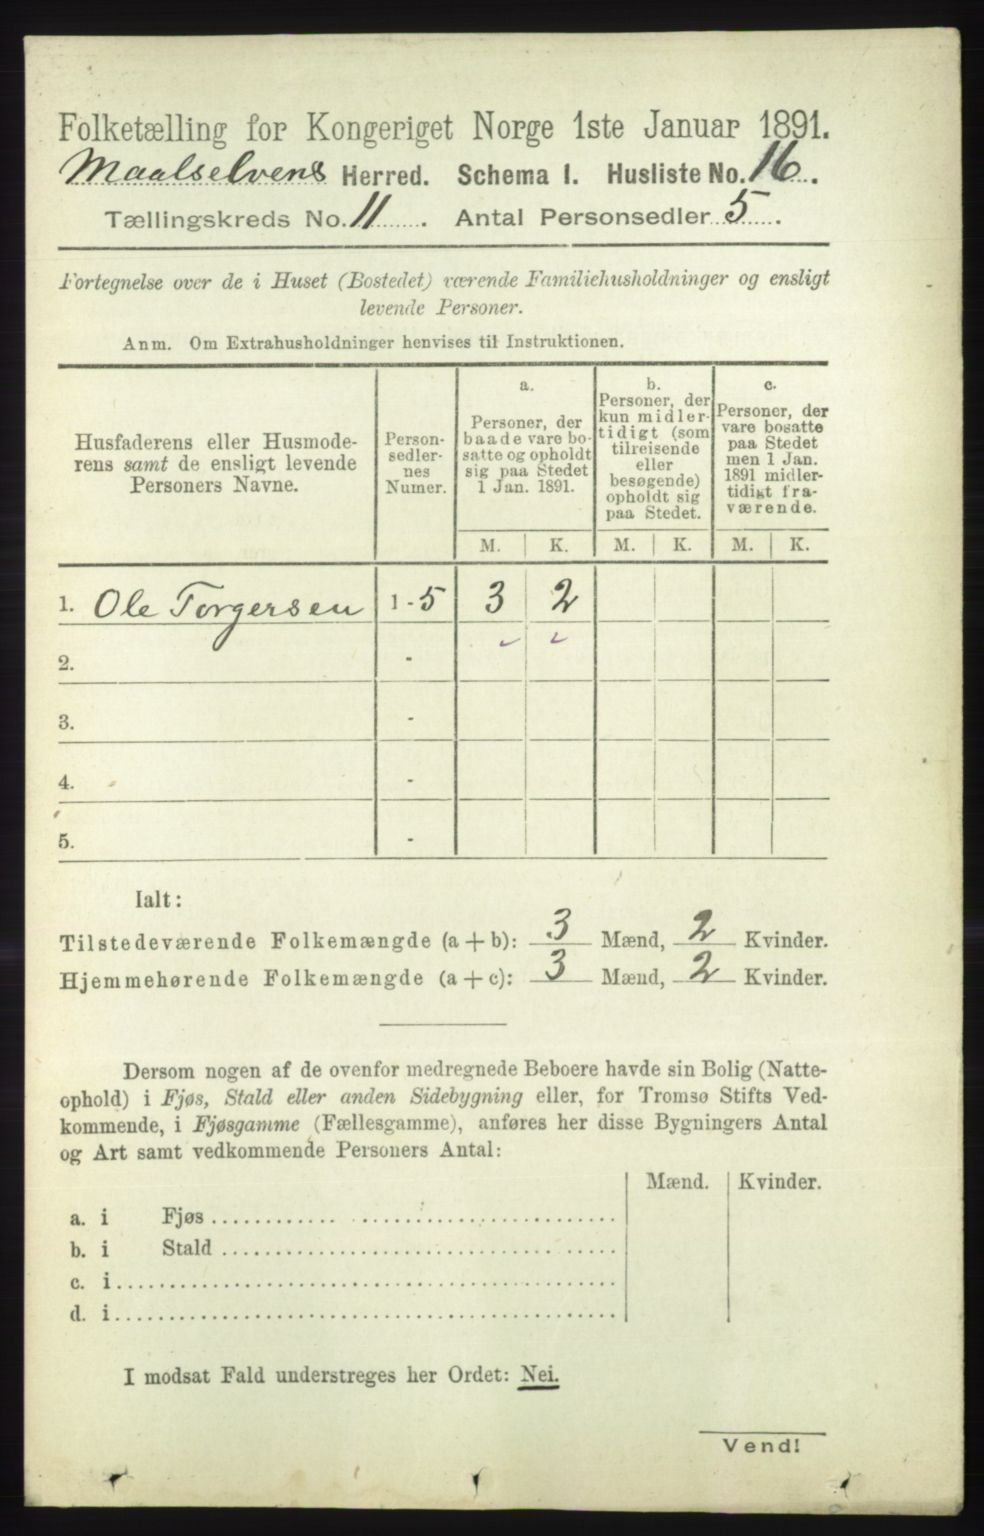 Folketælling for Kongeriget Norge 1ste Januar 1891.
Maalselvens Herred. Schema I. Husliste No. 16.
Tællingskreds No. 11. Antal Personsedler 5.
Fortegnelse over de i Huset (Bostedet) værende Familiehusholdninger og ensligt
levende Personer.
Anm. Om Extrahusholdninger henvises til Instruktionen.
Husfaderens eller Husmode-
rens samt de ensligt levende
Personers Navne.
Person-
sedler-
nes
Numer.
a.
Personer, der
baade vare bo-
satte og opholdt
sig paa Stedet
1 Jan. 1891.
b.
Personer, der
kun midler-
tidigt (som
tilreisende
eller
besøgende)
opholdt sig
paa Stedet.
c.
Personer, der
vare bosatte
paa Stedet
men 1 Jan.
1891 midler-
tidigt fra-
værende.
M. K. M. K. M. K.
1. Ole Torgersen 1 - 5 3 2
2. -
3. -
4. -
5. -
Ialt:
Tilstedeværende Folkemængde (a + b): 3 Mænd, 2 Kvinder.
Hjemmehørende Folkemængde (a + c): 3 Mænd, 2 Kvinder.
Dersom nogen af de ovenfor medregnede Beboere havde sin Bolig (Natte-
ophold) i Fjøs, Stald eller anden Sidebygning eller, for Tromsø Stifts Ved-
kommende, i Fjøsgamme (Fællesgamme), anføres her disse Bygningers Antal
og Art samt vedkommende Personers Antal:
Mænd. Kvinder.
a. i Fjøs
b. i Stald
c. i
d. i
I modsat Fald understreges her Ordet: Nei.
Vend!